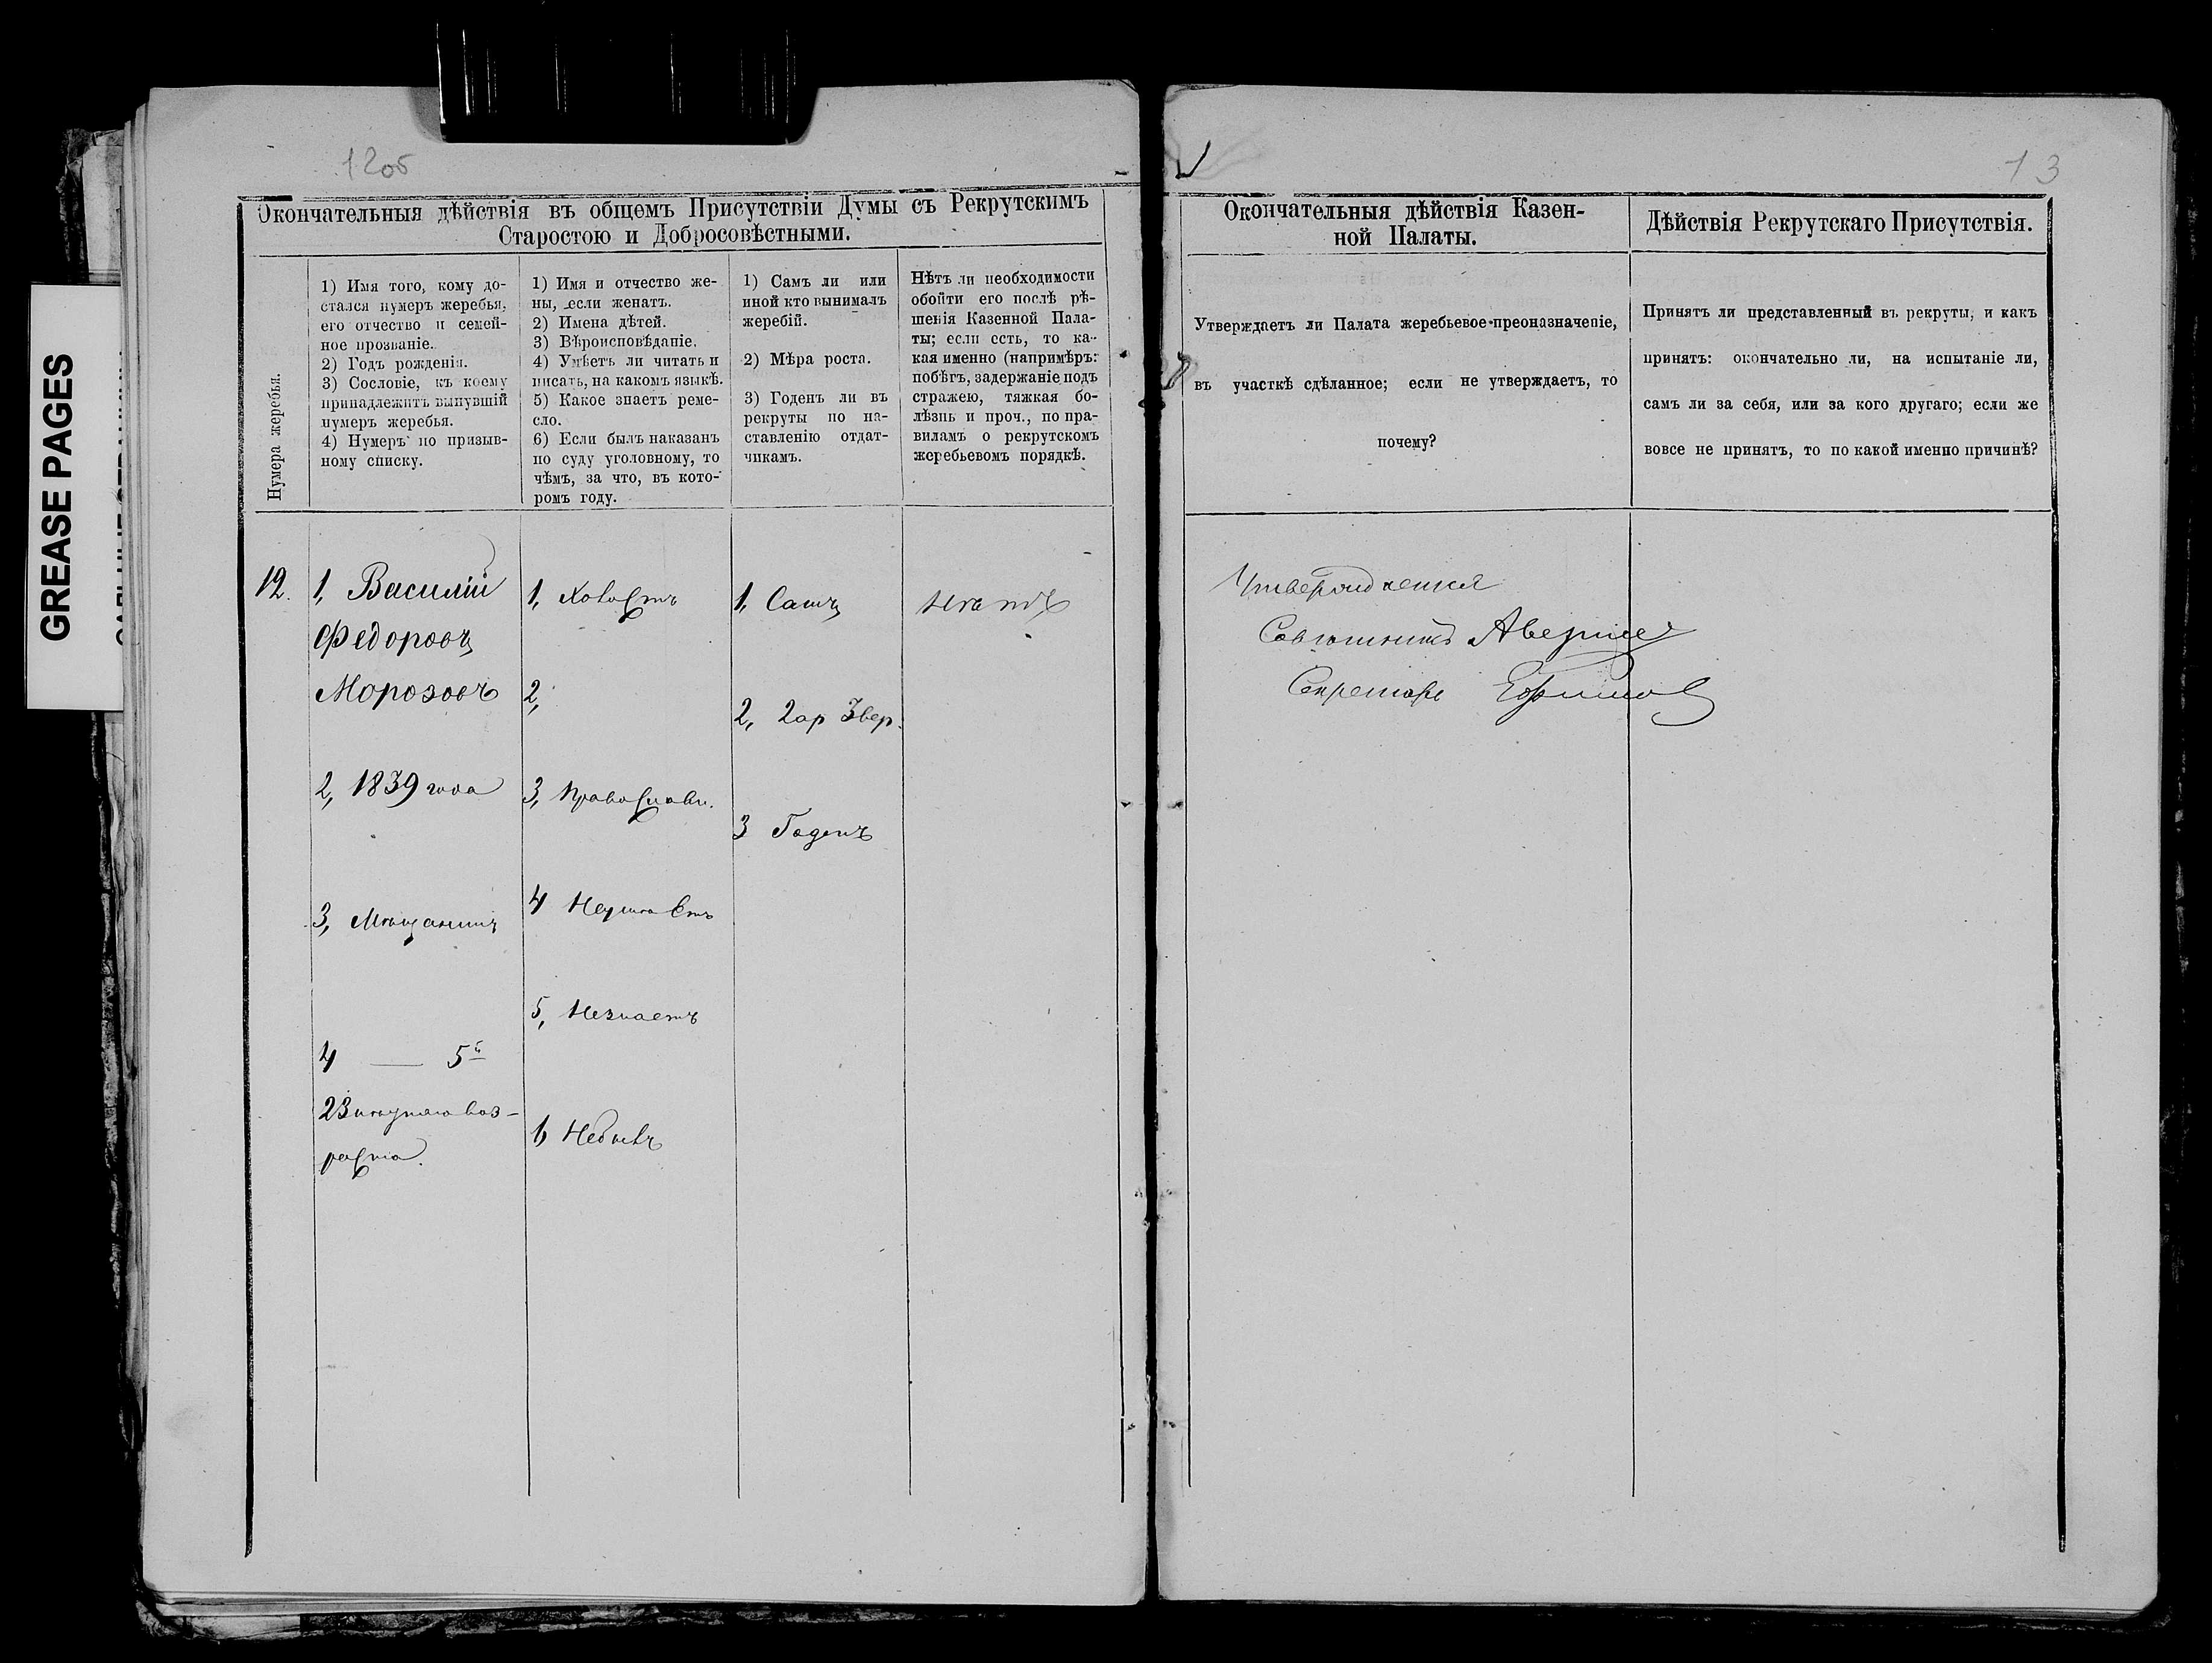 GREASE PAGES
12об
13
Окончательныя дѣйствія въ общемъ Присутствіи Думы съ Рекрутскимъ
Старостою и Добросовѣстными.
Нумера жеребья.
1) Имя того, кому до-
стался нумеръ жеребья,
его отчество и семей-
ное прозваніе.
2) Годъ рожденія.
3) Сословіе, къ коему
принадлежитъ вынувшій
нумеръ жеребья.
4) Нумеръ по призыв-
ному списку.
1) Имя и отчество же-
ны, если женатъ.
2) Имена дѣтей.
3) Вѣроисповѣданіе.
4) Умѣетъ ли читать и
писать, на какомъ языкѣ.
5) Какое знаетъ реме-
сло.
6) Если былъ наказанъ
по суду уголовному, то
чѣмъ, за что, въ кото-
ромъ году.
1) Самъ ли или
иной кто вынималъ
жеребій.
2) Мѣра роста.
3) Годенъ ли въ
рекруты по на-
ставленію отдат-
чикамъ.
Нѣтъ ли необходимости
обойти его послѣ рѣ-
шенія Казенной Пала-
ты; если есть, то ка-
кая именно (напримѣръ:
побѣгъ, задержаніе подъ
стражею, тяжкая бо-
лѣзнь и проч., по пра-
виламъ о рекрутскомъ
жеребьевомъ порядкѣ.
12.
1, Василій
Федоровъ
Морозовъ
2, 1839 года
3, Мѣщанинъ
4 — 5й
23 лѣтняго воз-
раста.
1, Холостъ
2,
3, Православн.
4 Неумѣетъ
5, Незнаетъ
6 Небылъ
1, Самъ
2, 2ар 3вер.
3 Годенъ
Нѣтъ
Окончательныя дѣйствія Казен-
ной Палаты.
Утверждаетъ ли Палата жеребьевое преоназначеніе,
въ участкѣ сдѣланное; если не утверждаетъ, то
почему?
Утверждается
Совѣтникъ
Секретарь Ефимов
Дѣйствія Рекрутскаго Присутствія.
Принятъ ли представленный въ рекруты, и какъ
принятъ: окончательно ли, на испытаніе ли,
самъ ли за себя, или за кого другаго; если же
вовсе не принятъ, то по какой именно причинѣ?